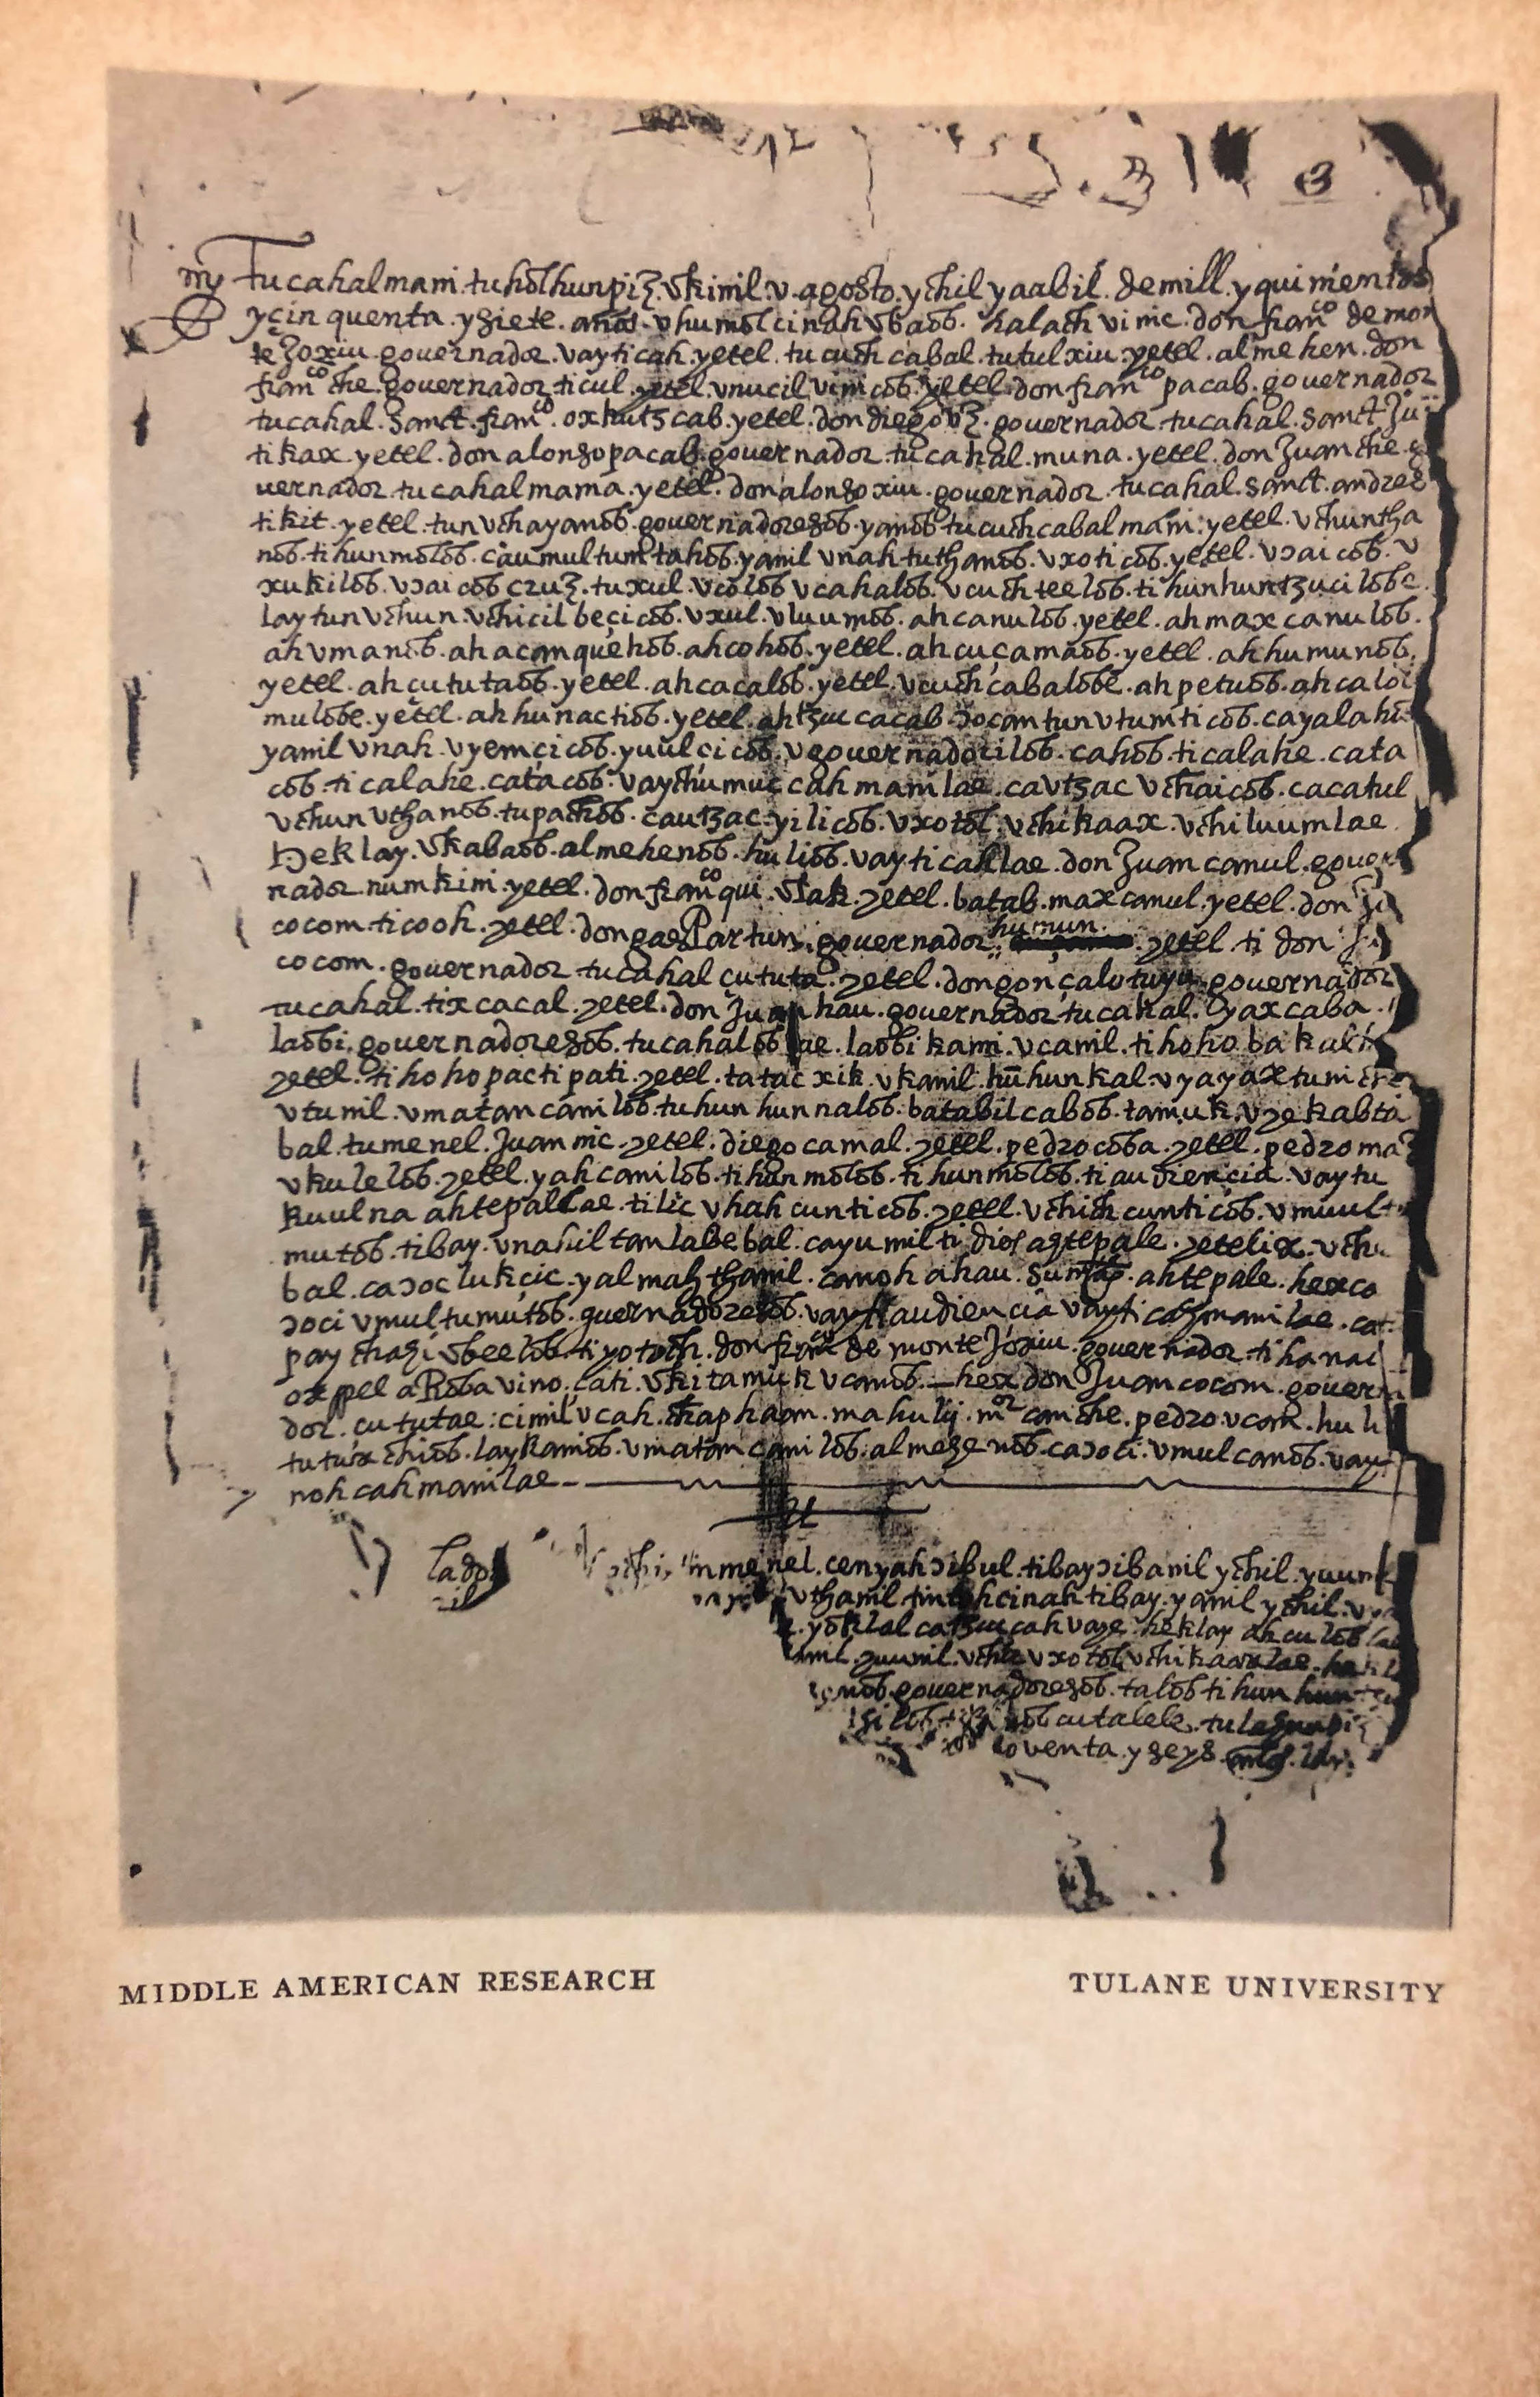 3
my Tu cahal mani. tu holhunpiz. v kinil. v. agosto. ychil yaabil. de mill. y quinientos
ycin quenta. y siete. años. v humolcinah vbaob. halach vinic. don franco de mon
teJoxiu. gouernador. vay ti cah. yetel. tu cuch cabal. tutul xiu. yetel. almehen. don
franco che. gouernador ticul. yetel. v nucil vinicob. yetel. don franco pacab. gouernador
tu cahal. Sanct. franco. oxkutzcab. yetel. don diego vz. gouernador. tu cahal. Sanct. Ju
tikax. yetel. don alonso pacab. gouernador. tu cahal. muna. yetel. don Juan che. go
uernador. tu cahal mama. yetel. don alonso xiu. gouernador. tu cahal. sanct. andres
tikit. yetel. tun v chayanob. gouernadoresob. yanob tu cuch cabal mani. yetel. v chuntha
nob. ti hunmolob. ca u multumtahob. yanil v nah tu thanob. v xoticob. yetel. v ɔaicob. v
xukilob. v ɔaicob cruz. tu xul. v colob v cahalob. v cuchteelob. ti hunhuntzucilobe.
lay tun v chun. v chicilbeçicob. v xul. v luumob. ah canulob. yetel. ah maxcanulob.
ah vmanob. ah acanquehob. ah cohob. yetel. ah cuçamaob. yetel. ah humunob.
yetel. ah çututaob. yetel. ah cacalob. yetel. v cuch cabalobe. ah petuob. ah calot
mulobe. yetel. ah hunactiob. yetel. ah tzuc cacab. ɔocantun v tumticob. ca yalahi
yanil v nah. v yemçicob. yuulçicob. v gouernadorilob. cahob. ti calahe. cata
cob. ti calahe. catacob. vay chumuc cah mani lae. ca vtzac v chaicob. cacatul
v chun v thanob. tu pachob. ca utzac. yilicob. v xotol. v chi kaax. v chi luum lae.
Heklay. v kabaob. almehenob. huliob. vay ti cah lae. don Juan canul. gouer
nador. numkini. yetel. don franco qui. v lak. yetel. batab. maxcanul. yetel. don Ju
cocom. ticooh. yetel. don gaspar tun. gouernador. humun. yetel. ti don Ju
cocom. gouernador tu cahal çututa. yetel. don gonçalo tuyu. gouernador
tu cahal. tixcacal. yetel. don Juan hau. gouernador tu cahal. yaxcaba.
laobi. gouernadoresob. tu cahalob lae. laobi kami. v canil. ti hoho bakal
yetel. ti hoho pacti pati. yetel. tatac xik. v kanil. hunhunkal. v yayax tuni
v tunil. v matan canilob. tu hunhunnalob. batabil cabob. tamuk. v yekabta
bal. tumenel. Juan nic. yetel. diego camal. yetel. pedro coba. yetel. pedro ma
v kulelob. yetel. yah canilob. ti hunmolob. ti hunmolob. ti audiençia. vay tu
kuul na ahtepal lae. tilic v hahcunticob. yetel. v chichcunticob. v muult
mutob. ti bay. v nahil tanlabebal. ca yumil ti dios ahtepale. yetelix. v chi
bal. ca ɔoc lukçic. yalmah thanil. ca noh ahau. ahtepale. hexca
ɔoci v multumutob. guernadoresob. vay ti audiençia vay ti cah mani lae. cat
pay chahi v beelob. ti yotoch. don franco de monteJoxiu. gouernador. ti hanal
oxppel aRoba vino. çati. v kitamuk v canob. — hex don Juan cocom. gouerna
dor. çututae: cimil v cah. chaphaan. ma hulij. mor canche. pedro v can. huli
tu tuxchiob. lay kamob. v matan canilob. almehenob. ca ɔoci. v mulcanob. vay
noh cah mani lae
tumenel. cen yah ɔibul. ti bay ɔibanil ychil. yuun
v thanil. tintohcinah ti bay. yanil ychil.
yoklal ca tzuc cah vaye. heklay ah culob
yuunil. v chi v xotol v chi kaax lae.
gouernadoresob. talob ti hun hun
cutalele.
y seys
MIDDLE AMERICAN RESEARCH
TULANE UNIVERSITY